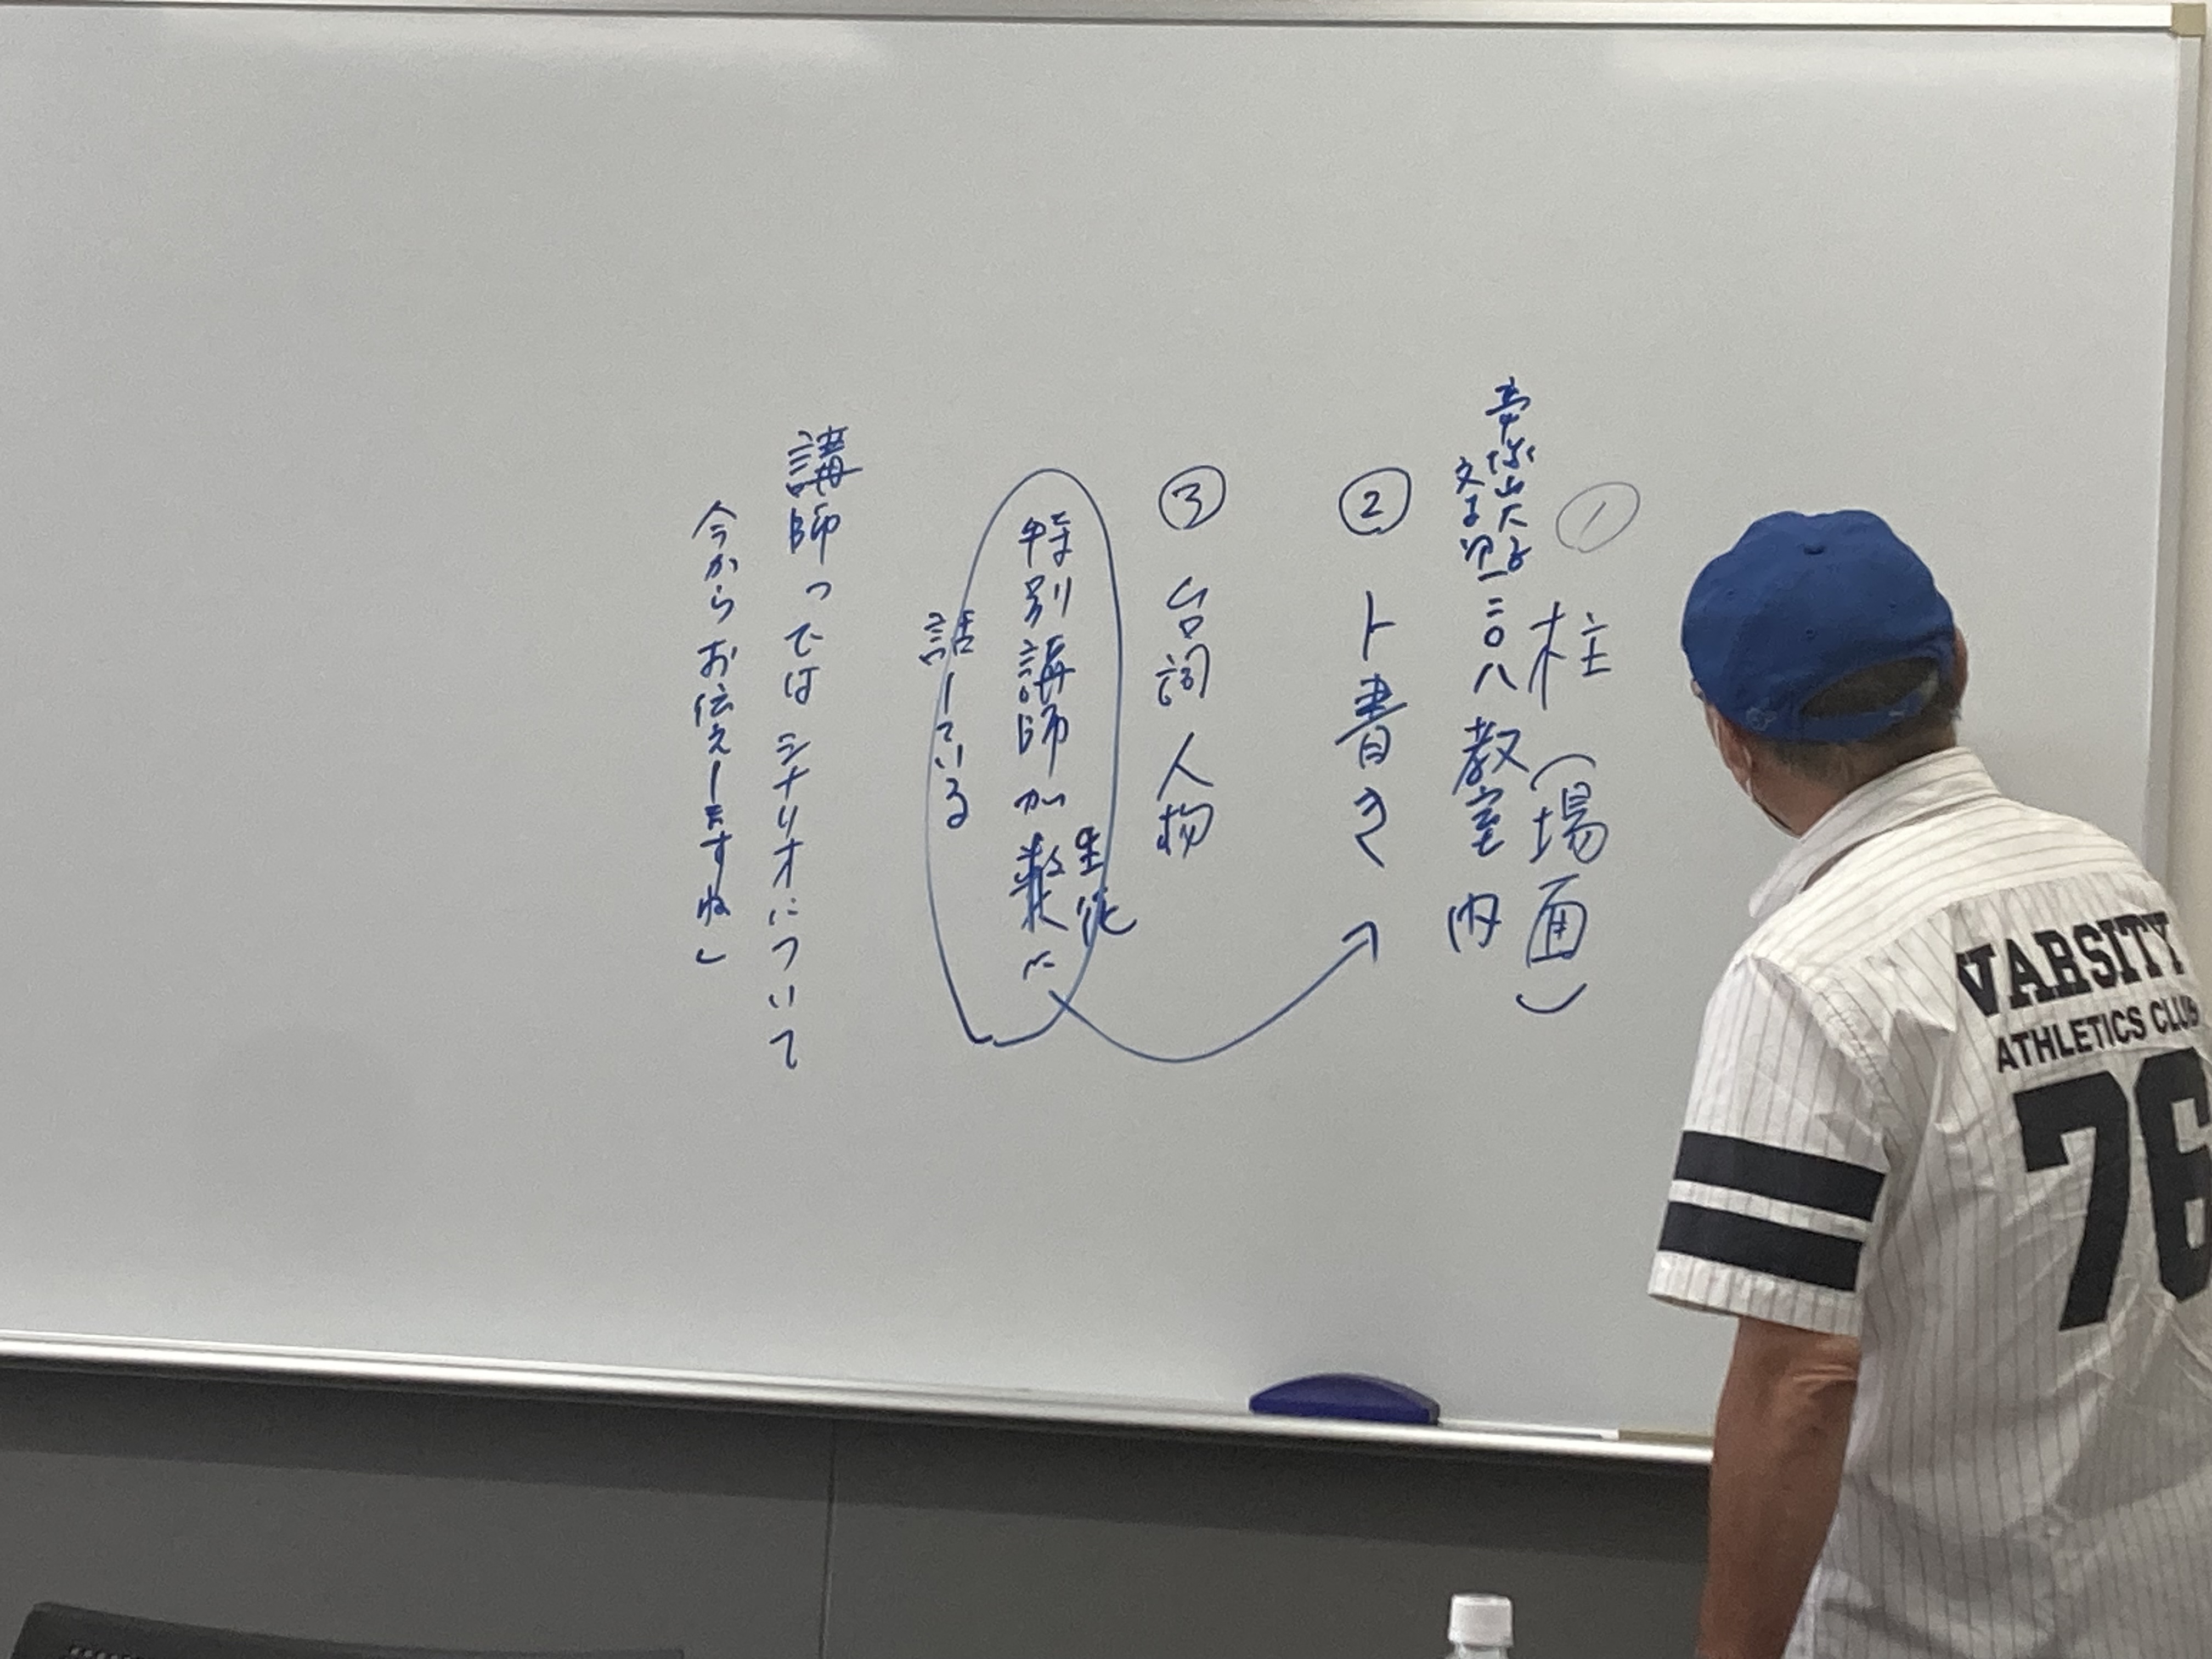 ①
柱（場面）
文学
二〇八教室内
② ト書き
③ 台詞 人物
特別講師が
生徒
に
話している
講師「ではシナリオについて
今からお伝えしますね」
VARSITY
ATHLETICS CLUB
76